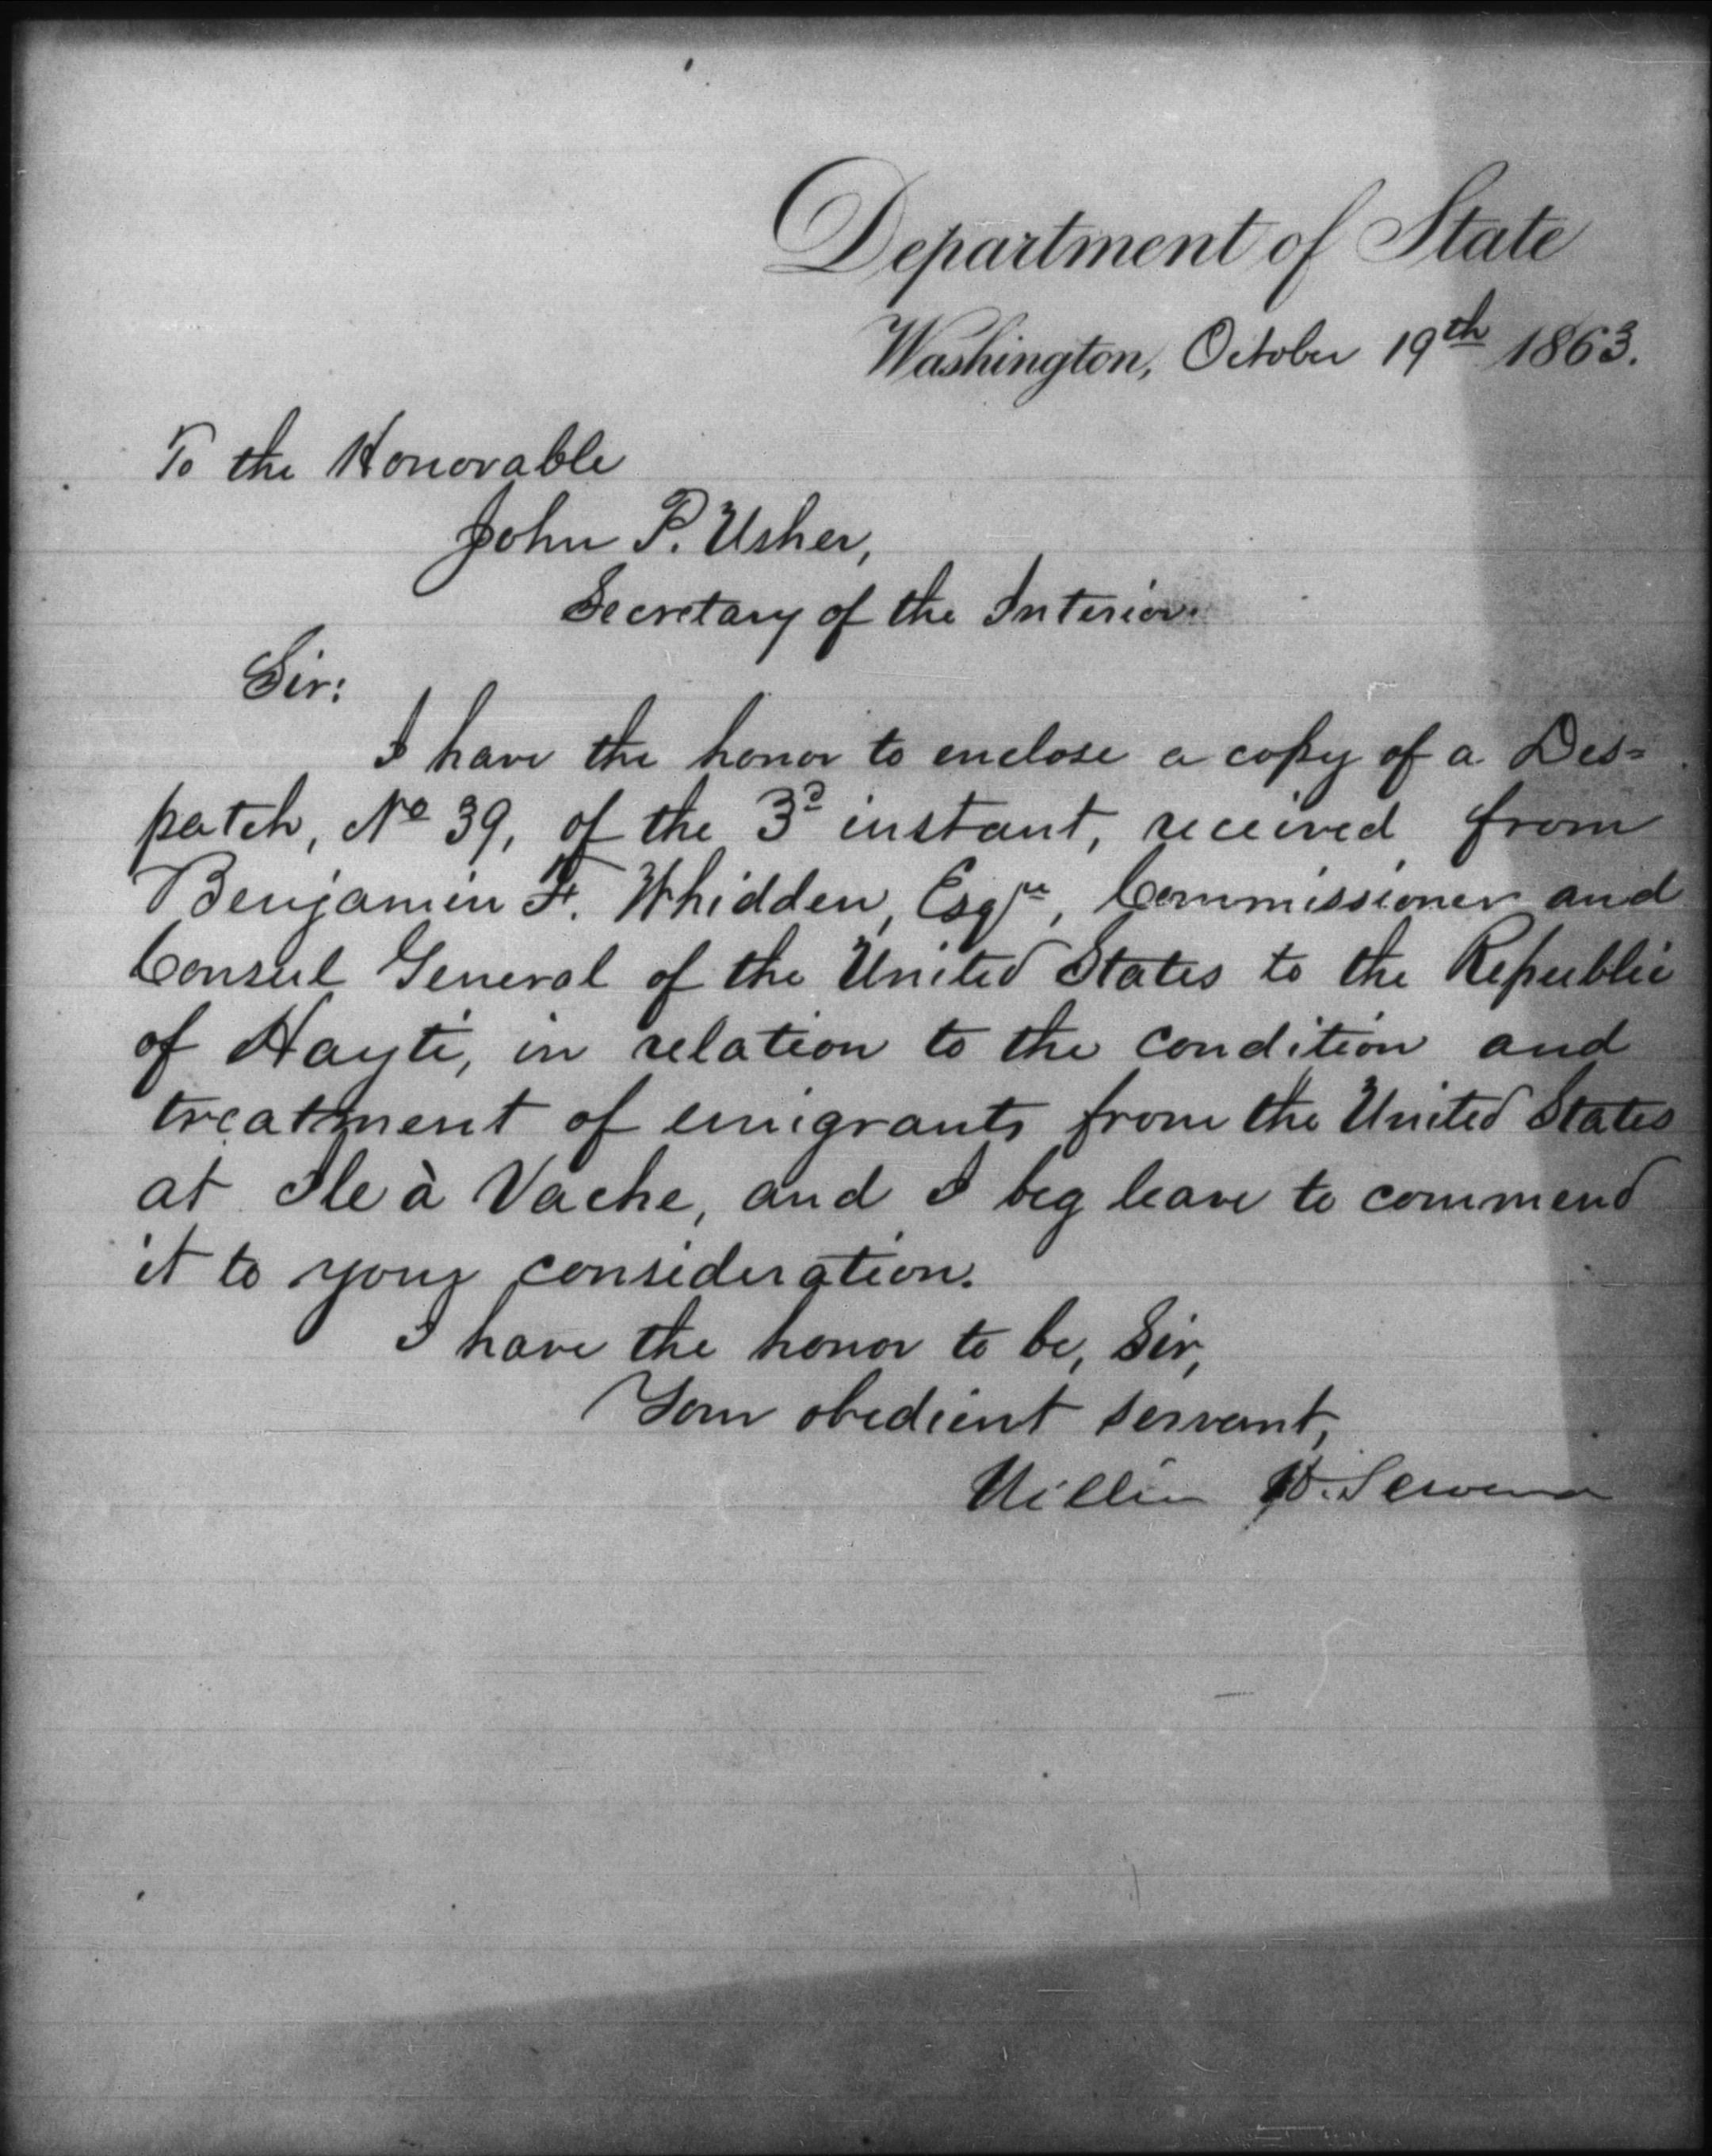 Department of State
Washington, October 19th 1863.
To the Honorable
John P. Usher,
Secretary of the Interior.
Sir:
I have the honor to enclose a copy of a Des=
patch, No 39, of the 3d instant, received from
Benjamin F. Whidden, Esqre, Commissioner and
Consul General of the United States to the Republic
of Hayti, in relation to the condition and
treatment of emigrants from the United States
at Ile à Vache, and I beg leave to commend
it to your consideration.
I have the honor to be, Sir,
Your obedient servant,
William H. Seward